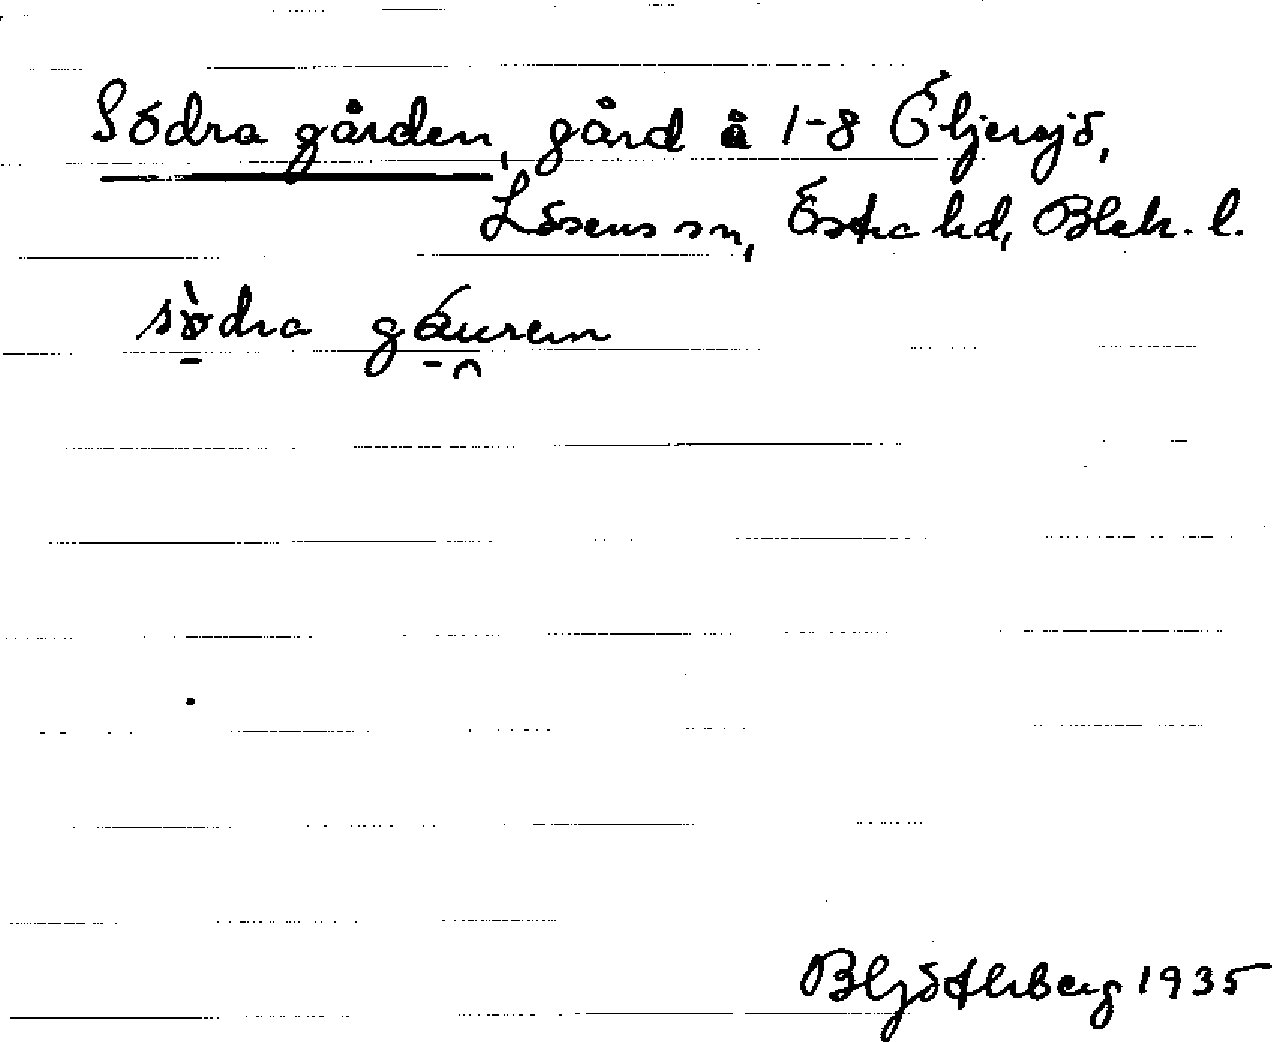 Södra gården, gård å 1-8 Öljersjö,
Lösens sn, Östra hd, Blek. l.
södra gáurem
BLjöstrberg 1935